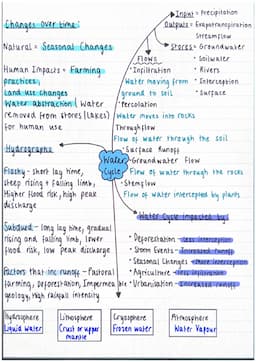 Changes over time:
Natural = Seasonal Changes
Human Impacts = Farming
practices,
Land use changes
Water abstraction (water
removed from stores (lakes)
for human use
Hydrographs
Flashy - short lag time,
steep rising + falling limb,
Higher flood risk, high peak
discharge
Subdued - long lag time, gradual
rising and falling limb, lower
flood risk, low peak discharge
Factors that inc runoff - Pastoral
farming, Deforestation, Impermeable
geology, High rainfall intensity
Water
Cycle
Input = Precipitation
Outputs = Evapotranspiration
Streamflow
Stores = Groundwater
• Soilwater
• Rivers
• Interception
• Surface
Flows
• Infiltration
Water moving from
ground to soil
• Percolation
Water moves into rocks
Throughflow
Flow of water through the soil
• Surface Runoff
• Groundwater Flow
Flow of water through the rocks
• Stemflow
Flow of water intercepted by plants
Water Cycle impacted by
• Deforestation - less interception
• Storm Events - Increased runoff
• Seasonal Changes -
• Agriculture - less infiltration
• Urbanisation - Increased runoff
Hydrosphere
Liquid water
Lithosphere
Crust or upper
mantle
Cryosphere
Frozen water
Atmosphere
Water Vapour